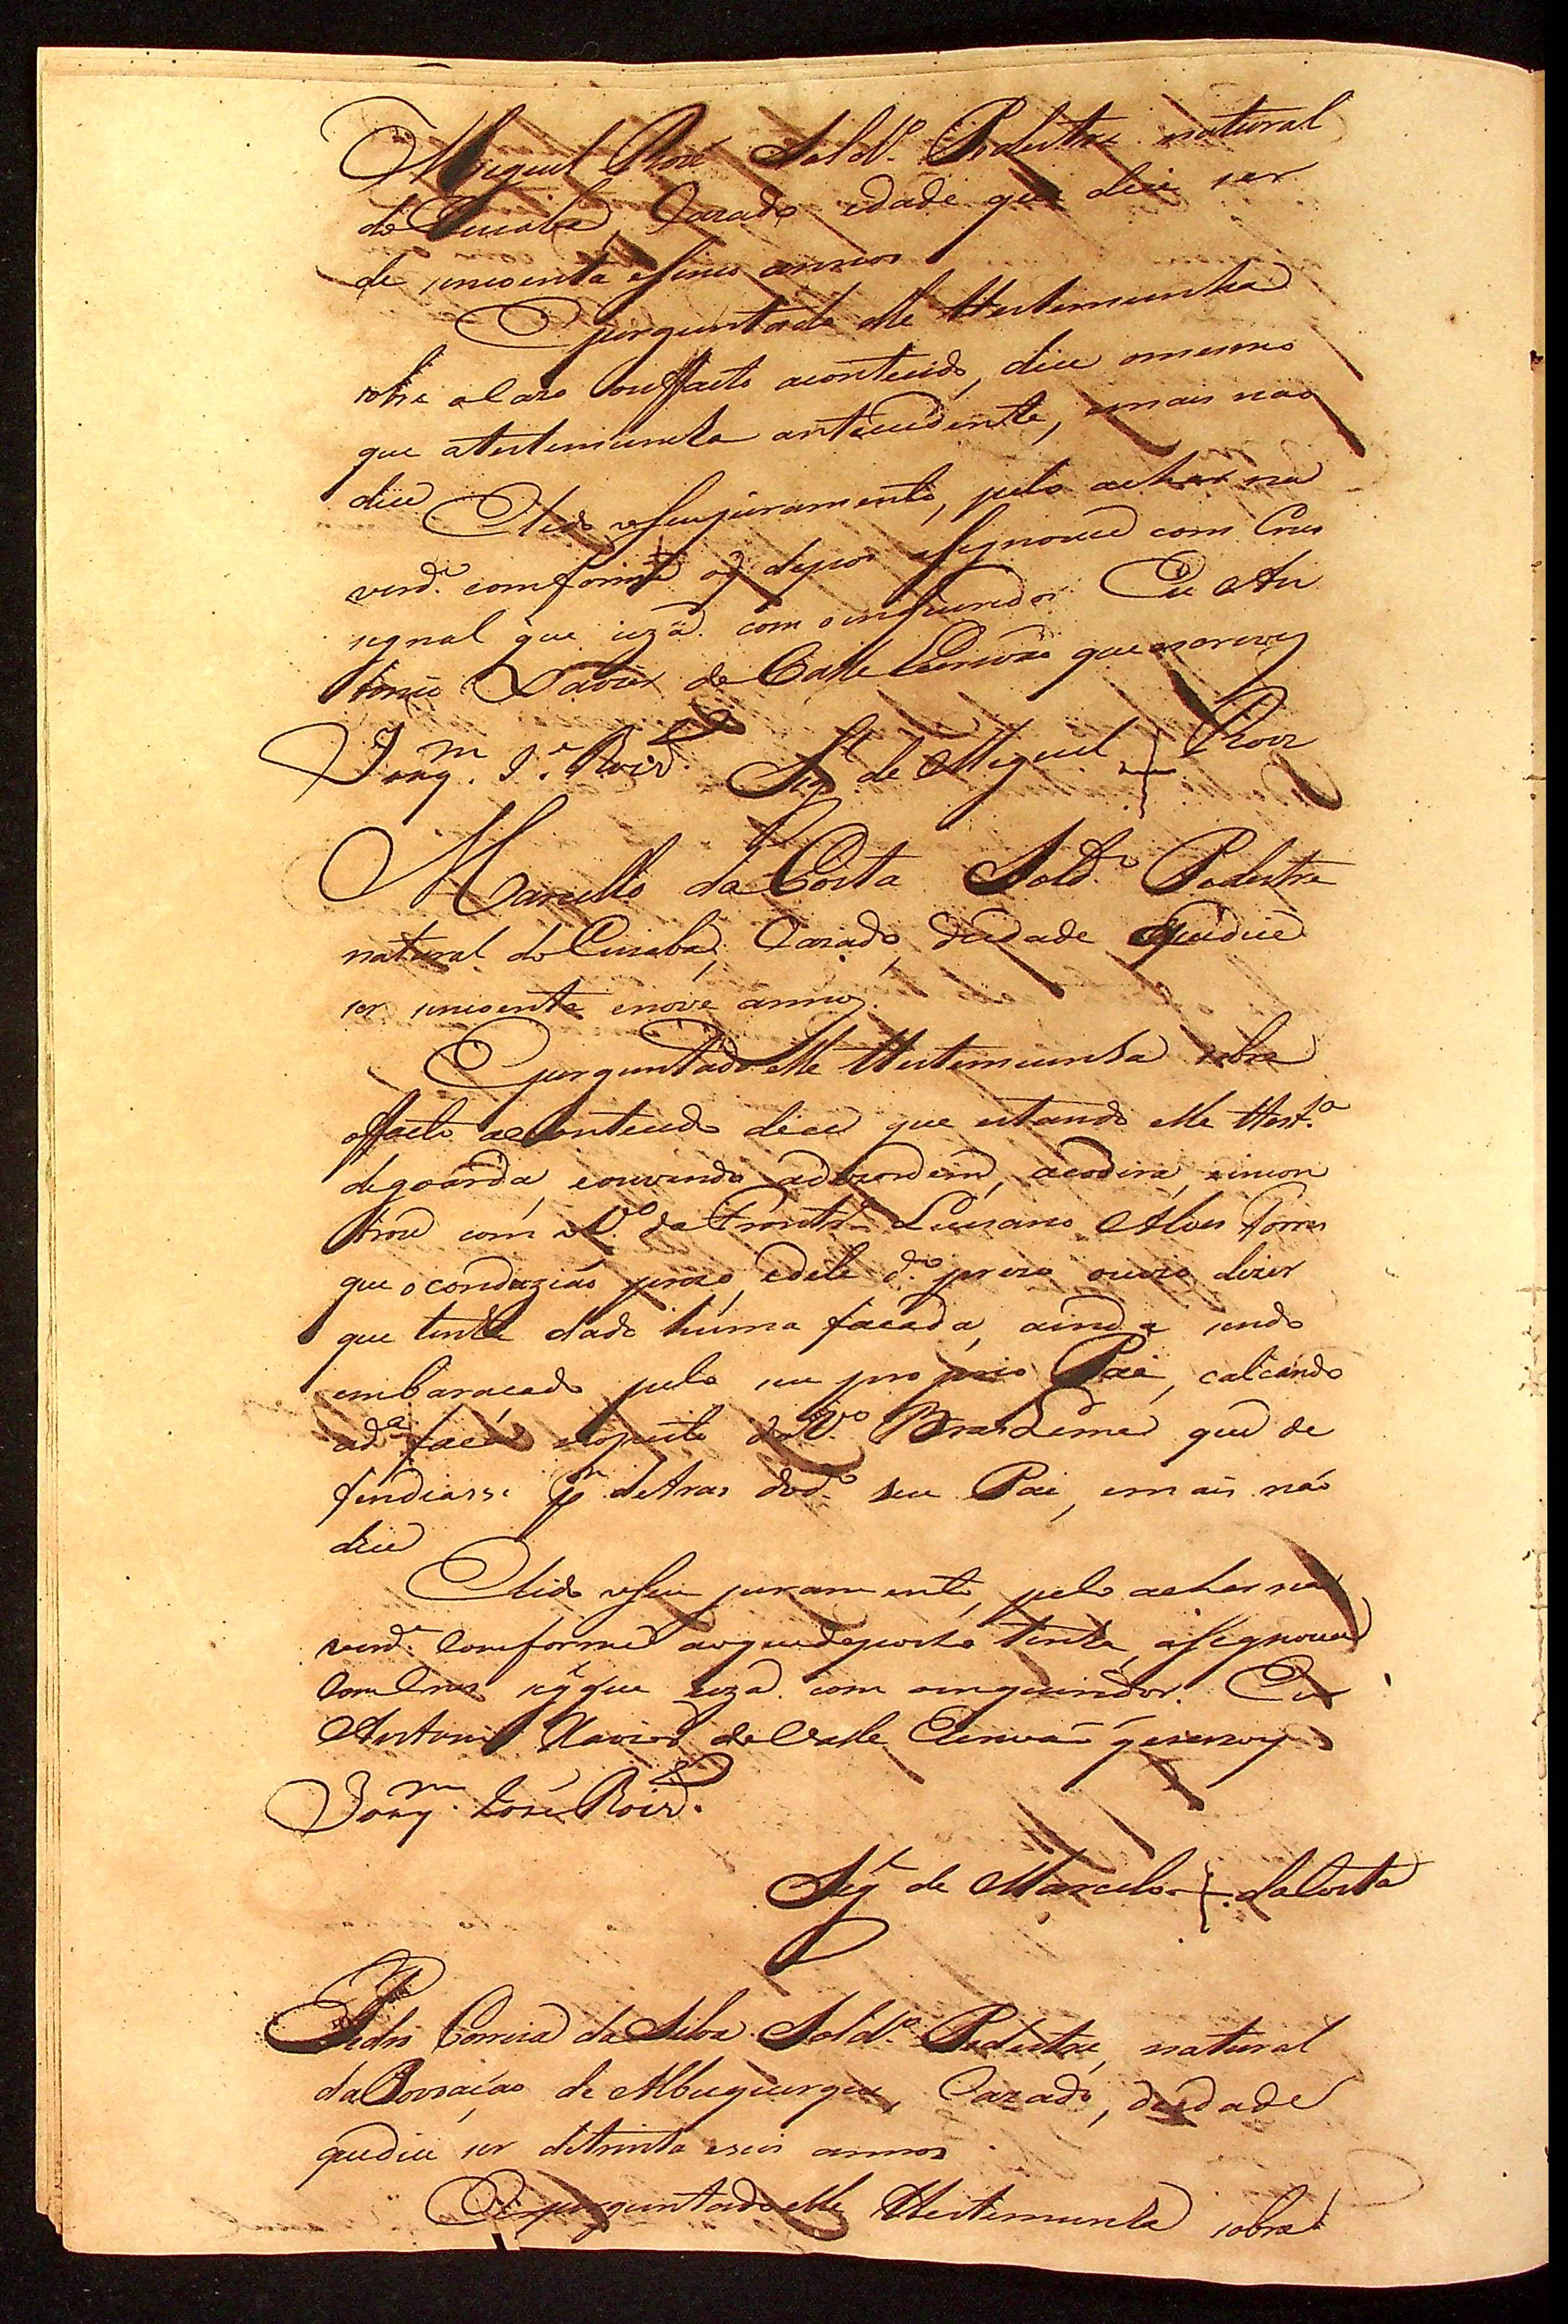 Miguel Roiz Sold.º Pedestre natural
do Cuiabá, Cazado idade que dice ser
de secoenta esinco annos
E perguntado elle ttestemunha
sobre o cazo ouffacto acontecido, dice omesmo
que atestemunha antecedente, emais naõ
dice
Elido oseu juramento, pelo achar na
verd.e comforme oq̃ depos assignou com Crus
signal que uza com oinquiridor. Eu An
tonio Xavier de Valle Escrivaõ que escrevy
Joaq.m J.e Roiz
Sig.l de Miguel + Roiz
Marcello da Costa Sold.º Pedestre
natural do Cuiabá, Cazado, deidade quedice
ser secoenta enove annos.
E perguntado elle ttestemunha sobre
offacto acontecido dice que estando elle ttest.a
degoarda, eouvindo adezordem, acodira, eincon
trou com o V.º da Front.ª Luciano Alves Torres
que oconduziaõ prezo, edele d.º prezo ouvio dizer
que tinha dado huma facada, ainda sendo
embaraçado pelo seu proprio Pai, calcando
ad.ª faca nopeito do V.º Bras Leme que de
fendiasse p.r detras dod.º seu Pai, emais naõ
dice
Elido oseu juramento, pelo achar na
verd.e Comforme aoquedeposto tinha, assignou
Com Crus sig.l que uza com oinquiridor. Eu
Antonio Xavier de Valle Escrivaõ q̃ escrevy
Joaq.m José Roiz.
Sig.l de Marcelo + da Costa
Pedro Correia da Silva Sold.º Pedestre, natural
da Povoaçaõ de Albuquerque, Cazado, deidade
quedice ser detrinta eseis annos
E perguntado elle ttestemunha sobre